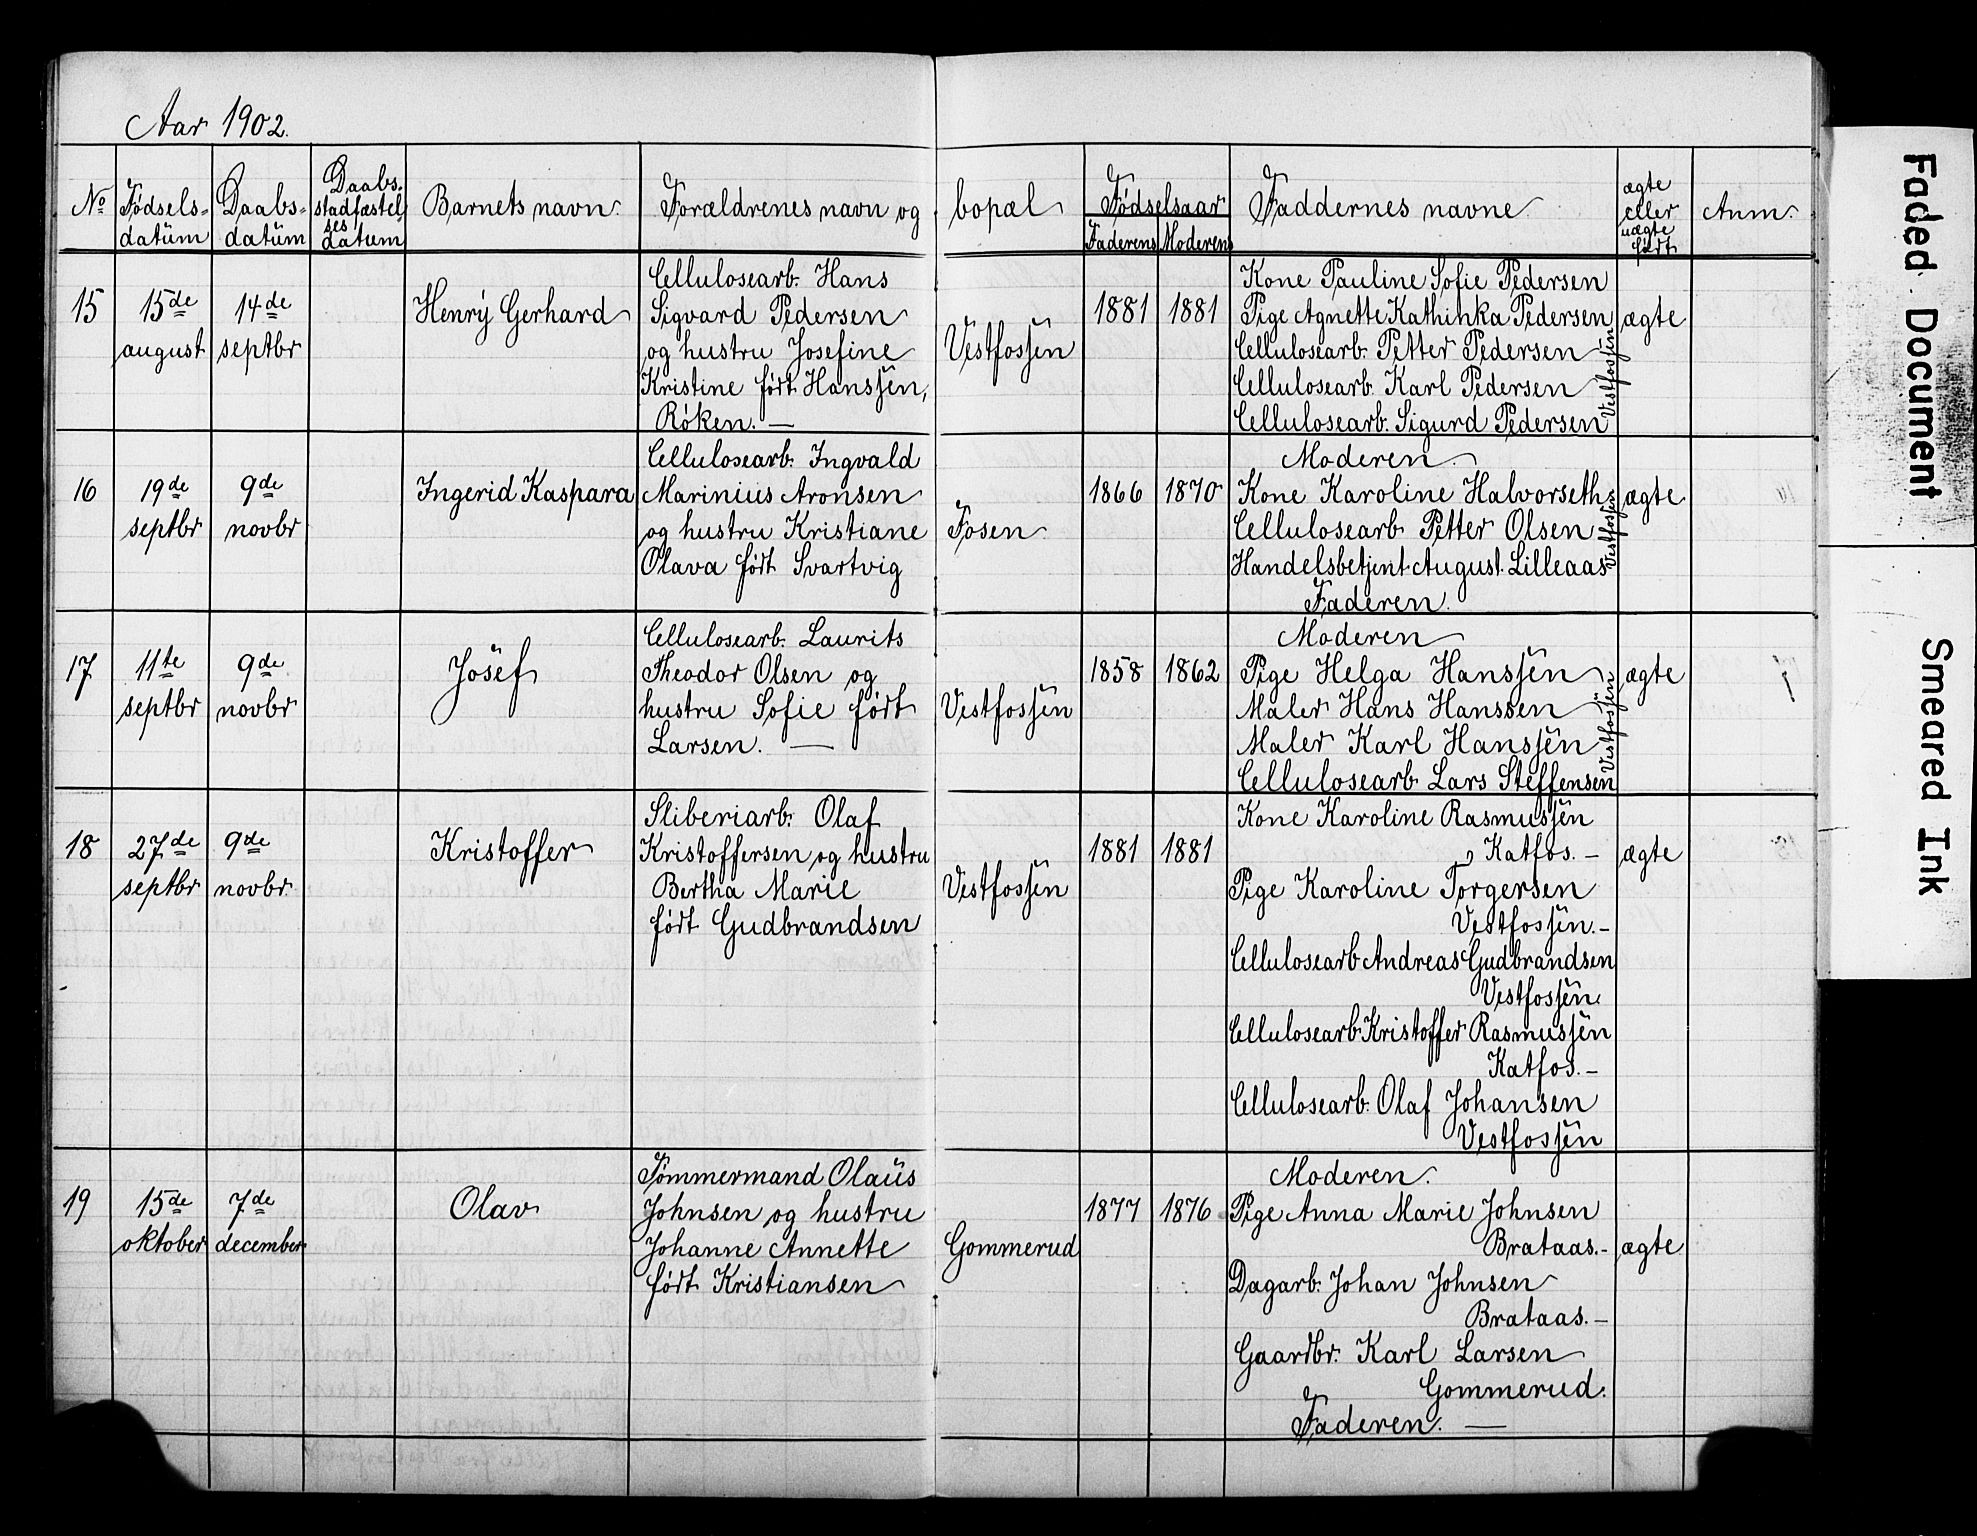 Aar 1902.
No
Fødsels-
datum
Daabs-
datum
Daabs-
stadfæstel-
ses
datum
Barnets navn.
Forældrenes navn og
bopæl
Fødselsaar
Faderens
Moderens
Faddernes navne.
ægte
eller
uægte
født
Anm.
15
15de
august
14de
septbr
Henry Gerhard
Cellulosearb. Hans
Sigvard Pedersen
og hustru Josefine
Kristine født Hanssen,
Røken. —
Vestfossen
1881
1881
Kone Pauline Sofie Pedersen
Pige Agnette Kathinka Pedersen
Cellulosearb. Petter Pedersen
Cellulosearb. Karl Pedersen
Cellulosearb. Sigurd Pedersen
Vestfossen
ægte
16
19de
septbr
9de
novbr
Ingerid Kaspara
Cellulosearb. Ingvald
Marinius Aronsen
og hustru Kristiane
Olava født Svartvig
Fosen
1866
1870
Moderen.
Kone Karoline Halvorseth
Cellulosearb Petter Olsen
Handelsbetjent August Lilleaas
Faderen.
Vestfossen
ægte
17
11te
septbr
9de
novbr
Josef
Cellulosearb. Laurits
Theodor Olsen og
hustru Sofie født
Larsen. —
Vestfossen
1858
1862
Moderen
Pige Helga Hanssen
Maler Hans Hanssen
Maler Karl Hanssen
Cellulosearb. Lars Steffensen
Vestfossen
ægte
18
27de
septbr
9de
novbr.
Kristoffer
Sliberiarb. Olaf
Kristoffersen og hustru
Bertha Marie
født Gudbrandsen
Vestfossen
1881
1881
Kone Karoline Rasmussen
Katfos. —
Pige Karoline Torgersen
Vestfossen. —
Cellulosearb Andreas Gudbrandsen
Vestfossen.
Cellulosearb. Kristoffer Rasmussen
Katfos. —
Cellulosearb. Olaf Johansen
Vestfossen
ægte
19
15de
oktober
7de
december
Olav
Tømmermand Olaus
Johnsen og hustru
Johanne Annette
født Kristiansen
Gommerud
1877
1876
Moderen.
Pige Anna Marie Johnsen
Brataas. -
Dagarb. Johan Johnsen
Brataas. —
Gaardbr. Karl Larsen
Gommerud.
Faderen. —
ægte
Faded Document
Smeared Ink